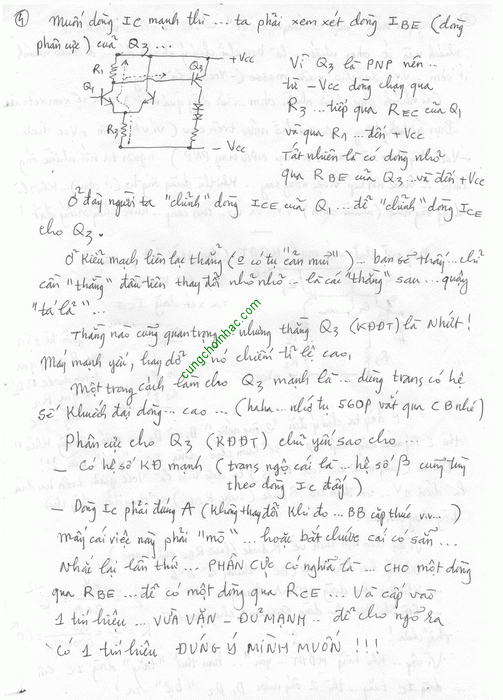 ④ Muốn dòng Ic mạnh thì ... ta phải xem xét dòng IBE (dòng
phân cực) của Q3 ...
R1
Q3
+Vcc
Q1
R3
- Vcc
Vì Q3 là PNP nên ..
từ -Vcc dòng chạy qua
R3 ... tiếp qua REC của Q1
và qua R1 ... đến +Vcc
Tất nhiên là có dòng nhỏ
qua RBE của Q3 .. và đến +Vcc
Ở đây người ta "chỉnh" dòng ICE của Q1 ... để "chỉnh" dòng ICE
cho Q3.
Ở kiểu mạch liên lạc thẳng (o có tụ "cản mũi") ... bạn sẽ thấy .. chỉ
cần "thằng" đầu tiên thay đổi nhỏ nhỏ .. là cái "thằng" sau ... quậy
"tá lả" ...
Thằng nào cũng quan trọng .. nhưng thằng Q3 (KĐĐT) là Nhứt!
Máy mạnh yếu, hay dở .. nó chiếm tỉ lệ cao,
cungchoinhac.com
Một trong cách làm cho Q3 mạnh là ... dùng trans có hệ
số khuếch đại dòng ... cao ... (haha .. nhớ tụ 560P vắt qua CB nhé)
Phân cực cho Q3 (KĐĐT) chủ yếu sao cho ...
- Có hệ số KĐ mạnh (trans ngộ cái là ... hệ số β cũng tùy
theo dòng Ic đấy!)
- Dòng Ic phải đúng A (không thay đổi khi đo ... BB cấp thức v.v... )
Mấy cái việc này phải "mò" ... hoặc bắt chước cái có sẵn ...
Nhắc lại lần thứ ... PHÂN CỰC có nghĩa là ... CHO một dòng
qua RBE ... để có một dòng qua RCE ... Và cấp vào
1 tín hiệu ... VỪA VẶN - ĐỦ MẠNH .. để cho ngõ ra
có 1 tín hiệu ĐÚNG Ý MÌNH MUỐN !!!